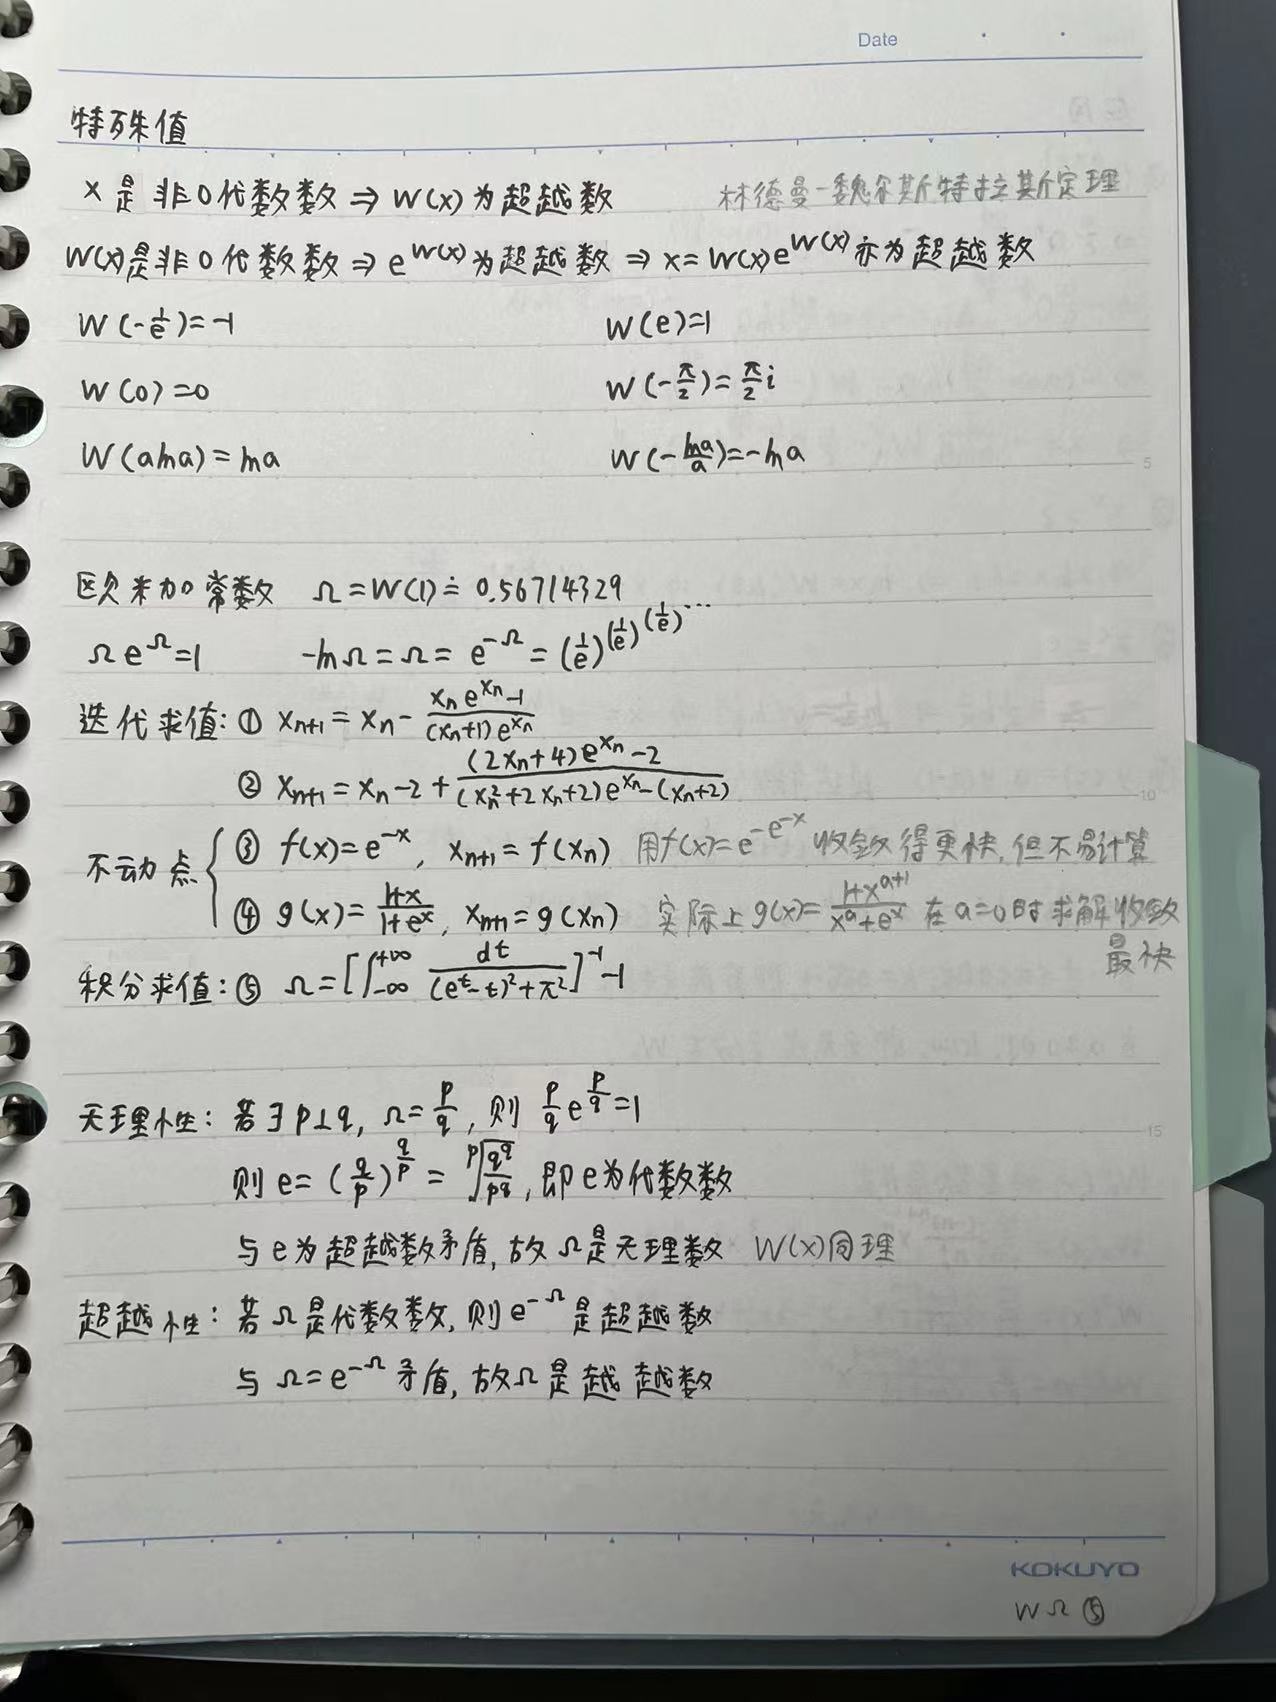 Date
特殊值
x是非0代数数⇒W(x)为超越数 林德曼-魏尔斯特拉斯定理
W(x)是非0代数数⇒e^{W(x)}为超越数⇒x=W(x)e^{W(x)}亦为超越数
W(-\frac{1}{e})=-1 W(e)=1
W(0)=0 W(-\frac{π}{2})=\frac{π}{2}i
W(alna)=lna W(-\frac{lna}{a})=-lna
5
欧米加常数 Ω=W(1)≐0.56714329
Ωe^Ω=1 -lnΩ=Ω=e^{-Ω}=(\frac{1}{e})^{(\frac{1}{e})^{(\frac{1}{e})^{…}}}
迭代求值:① x_{n+1}=x_n-\frac{x_n e^{x_n}-1}{(x_n+1)e^{x_n}}
② x_{n+1}=x_n-2+\frac{(2x_n+4)e^{x_n}-2}{(x_n^2+2x_n+2)e^{x_n}-(x_n+2)}
10
不动点 { ③ f(x)=e^{-x}, x_{n+1}=f(x_n) 用f(x)=e^{-e^{-x}}收敛得更快,但不易计算
④ g(x)=\frac{1+x}{1+e^x}, x_{n+1}=g(x_n) 实际上g(x)=\frac{1+x^{a+1}}{x^a+e^x}在a=0时求解收敛
最快
积分求值:⑤ Ω=[∫_{-∞}^{+∞}\frac{dt}{(e^t-t)^2+π^2}]^{-1}-1
无理性:若∃p⊥q, Ω=\frac{p}{q},则\frac{p}{q}e^{\frac{p}{q}}=1
15
则e=(\frac{q}{p})^{\frac{q}{p}}=\sqrt[p]{\frac{q^q}{p^q}},即e为代数数
与e为超越数矛盾,故Ω是无理数 W(x)同理
超越性:若Ω是代数数,则e^{-Ω}是超越数
与Ω=e^{-Ω}矛盾,故Ω是越越数
KOKUYO
WΩ⑤